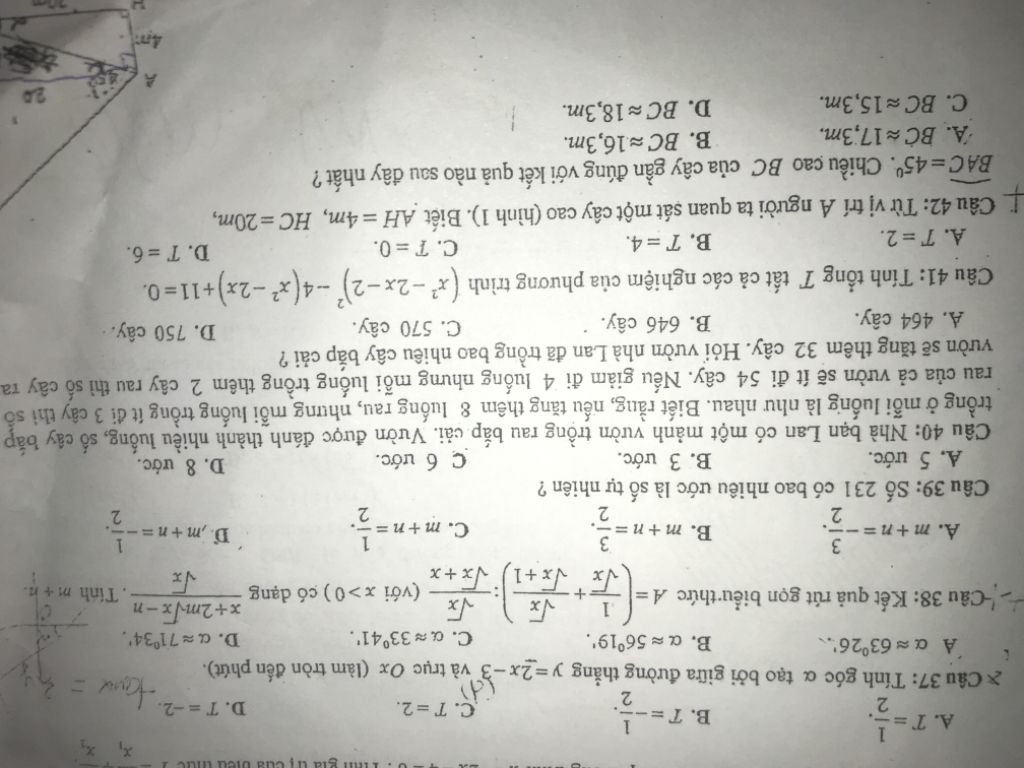 2x - 4 = 0 . Tính giá trị của biểu thức T =
x₁ x₂
A. T = 1/2. B. T = -1/2. C. T = 2. D. T = -2.
Câu 37: Tính góc α tạo bởi giữa đường thẳng y = 2x - 3 và trục Ox (làm tròn đến phút).
(d)
A α ≈ 63⁰26'. B. α ≈ 56⁰19'. C. α ≈ 33⁰41'. D. α ≈ 71⁰34'.
Câu 38: Kết quả rút gọn biểu thức A = (1/√x + √x/(√x+1)) : √x/(√x+x) (với x > 0) có dạng (x+2m√x-n)/√x. Tính m + n.
A. m + n = -3/2. B. m + n = 3/2. C. m + n = 1/2. D. m + n = -1/2.
Câu 39: Số 231 có bao nhiêu ước là số tự nhiên ?
A. 5 ước. B. 3 ước. C 6 ước. D. 8 ước.
Câu 40: Nhà bạn Lan có một mảnh vườn trồng rau bắp cải. Vườn được đánh thành nhiều luống, số cây bắp
trồng ở mỗi luống là như nhau. Biết rằng, nếu tăng thêm 8 luống rau, nhưng mỗi luống trồng ít đi 3 cây thì số
rau của cả vườn sẽ ít đi 54 cây. Nếu giảm đi 4 luống nhưng mỗi luống trồng thêm 2 cây rau thì số cây ra
vườn sẽ tăng thêm 32 cây. Hỏi vườn nhà Lan đã trồng bao nhiêu cây bắp cải ?
A. 464 cây. B. 646 cây. C. 570 cây. D. 750 cây.
Câu 41: Tính tổng T tất cả các nghiệm của phương trình (x² - 2x - 2)² - 4(x² - 2x) + 11 = 0.
A. T = 2. B. T = 4. C. T = 0. D. T = 6.
Câu 42: Từ vị trí A người ta quan sát một cây cao (hình 1). Biết AH = 4m, HC = 20m,
BAC = 45⁰. Chiều cao BC của cây gần đúng với kết quả nào sau đây nhất ?
A. BC ≈ 17,3m. B. BC ≈ 16,3m.
C. BC ≈ 15,3m. D. BC ≈ 18,3m.
A
20
45°
4m
H
20m